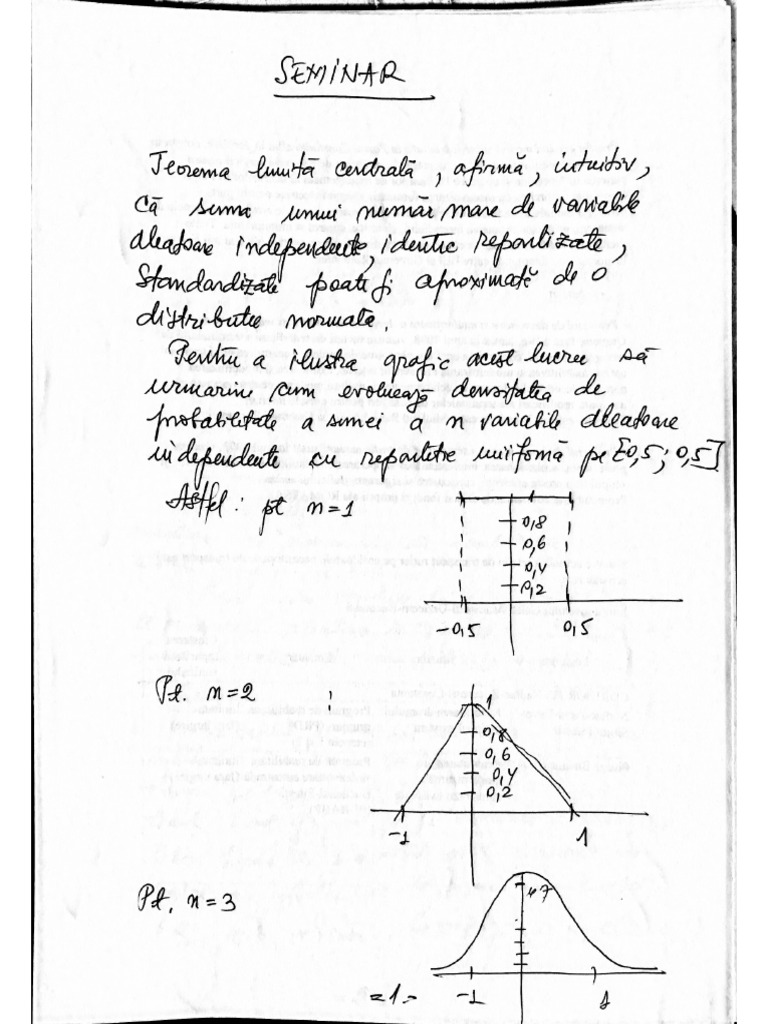 SEMINAR
Teorema limită centrală, afirmă, intuitiv,
că suma unui număr mare de variabile
aleatoare independente, identic repartizate,
standardizate poate fi aproximată de o
distribuție normată.
Pentru a ilustra grafic acest lucru să
urmărim cum evoluează densitatea de
probabilitate a sumei a n variabile aleatoare
independente cu repartiție uniformă pe [0,5; 0,5]
Astfel: pt n=1
1
0,8
0,6
0,4
0,2
-0,5 0,5
Pt. n=2 :
1
0,8
0,6
0,4
0,2
-1 1
Pt. n=3
-1 1
=1=